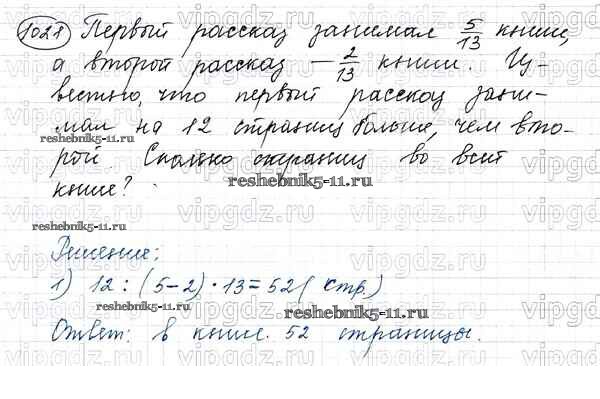 1028 Первый рассказ занимал 5/13 книги,
а второй рассказ — 2/13 книги. Из-
вестно, что первый рассказ зани-
мал на 12 страниц больше, чем вто-
рой. Сколько страниц во всей
книге?
Решение:
1) 12 : (5-2) · 13 = 52 (стр.)
Ответ: в книге 52 страницы.
reshebnik5-11.ru
reshebnik5-11.ru
reshebnik5-11.ru
reshebnik5-11.ru
reshebnik5-11.ru
vipgdz.ru